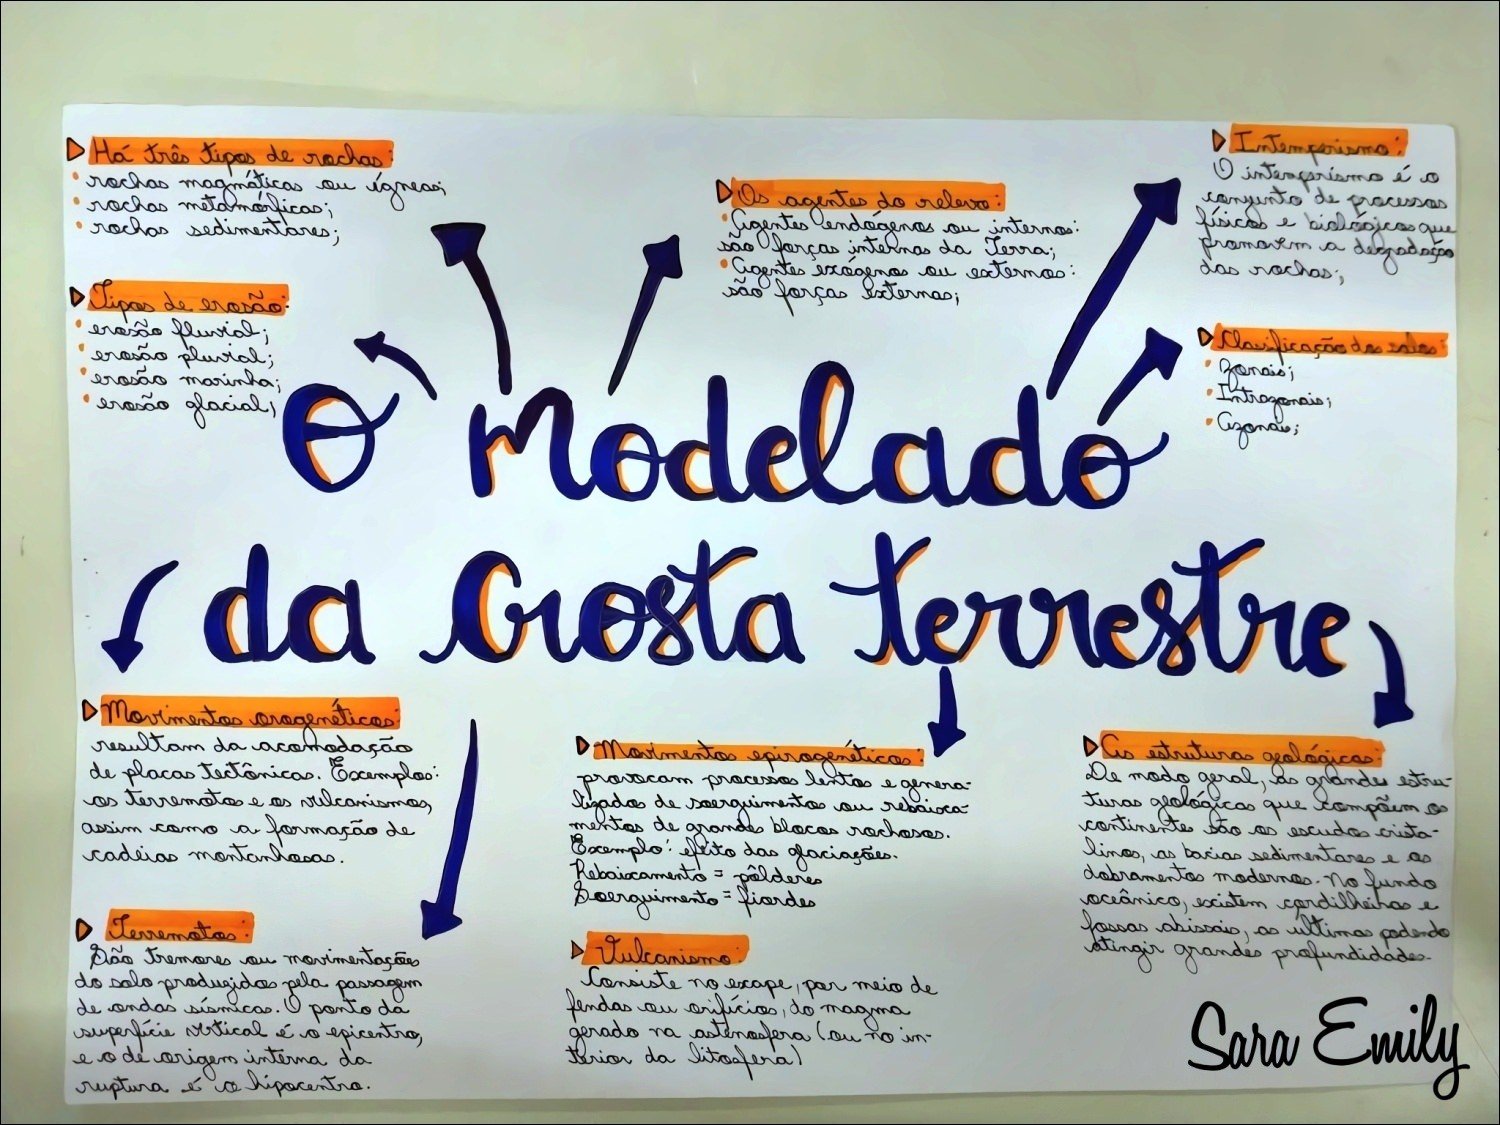 Há três tipos de rochas:
• rochas magmáticas ou ígneas;
• rochas metamórficas;
• rochas sedimentares;
Tipos de erosão:
• erosão fluvial;
• erosão pluvial;
• erosão marinha;
• erosão glacial;
Os agentes do relevo:
• Agentes endógenos ou internos:
são forças internas da Terra;
• Agentes exógenos ou externos:
são forças externas;
Intemperismo:
O intemperismo é o
conjunto de processos
físicos e biológicos que
promovem a degradação
das rochas;
Classificação dos solos:
• Zonais;
• Intrazonais;
• Azonais;
O Modelado
da Crosta Terrestre
Movimentos orogenéticos:
resultam da acomodação
de placas tectônicas. Exemplos:
os terremotos e os vulcanismos,
assim como a formação de
cadeias montanhosas.
Terremotos:
São tremores ou movimentações
do solo produzidos pela passagem
de ondas sísmicas. O ponto da
superfície vertical é o epicentro,
e o de origem interna da
ruptura é o hipocentro.
Movimentos epirogenéticos:
provocam processos lentos e genera-
lizados de soerguimentos ou rebaixa-
mentos de grandes blocos rochosos.
Exemplo: efeito das glaciações.
Rebaixamento = pôlderes
Soerguimento = fiordes
Vulcanismo:
Consiste no escape, por meio de
fendas ou orifícios, do magma
gerado na astenosfera (ou no in-
terior da litosfera)
As estruturas geológicas:
De modo geral, as grandes estru-
turas geológicas que compõem os
continentes são os escudos crista-
linos, as bacias sedimentares e os
dobramentos modernos. No fundo
oceânico, existem cordilheiras e
fossas abissais, as últimas podendo
atingir grandes profundidades.
Sara Emily